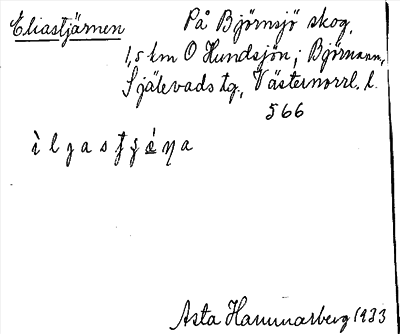 Eliastjärnen På Björnsjö skog,
1,5 km O Hundsjön, i Björnann,
Själevads tg, Västernorrl. l.
566
Asta Hammarberg 1933